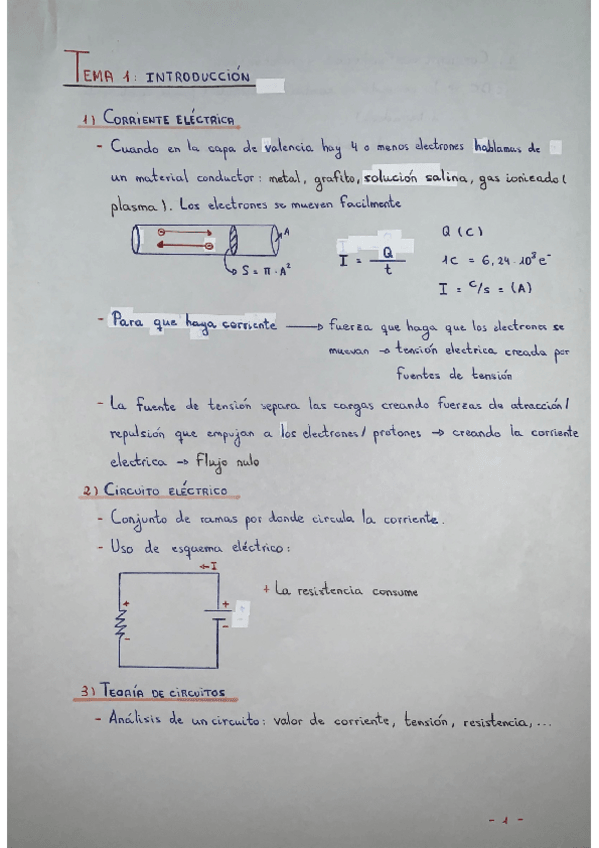 TEMA 1: INTRODUCCIÓN
1) CORRIENTE ELÉCTRICA
- Cuando en la capa de valencia hay 4 o menos electrones hablamos de
un material conductor: metal, grafito, solución salina, gas ionizado (
plasma). Los electrones se mueven facilmente
A
S = π · A²
I = Q / t
Q (C)
1C = 6,24 · 10³ e⁻
I = C/s = (A)
- Para que haya corriente → fuerza que haga que los electrones se
muevan → tensión electrica creada por
fuentes de tensión
- La fuente de tensión separa las cargas creando fuerzas de atracción/
repulsión que empujan a los electrones/ protones → creando la corriente
electrica → Flujo nulo
2) CIRCUITO ELÉCTRICO
- Conjunto de ramas por donde circula la corriente.
- Uso de esquema eléctrico:
← I
+ +
- -
+ La resistencia consume
3) TEORÍA DE CIRCUITOS
- Análisis de un circuito: valor de corriente, tensión, resistencia, ...
- 1 -